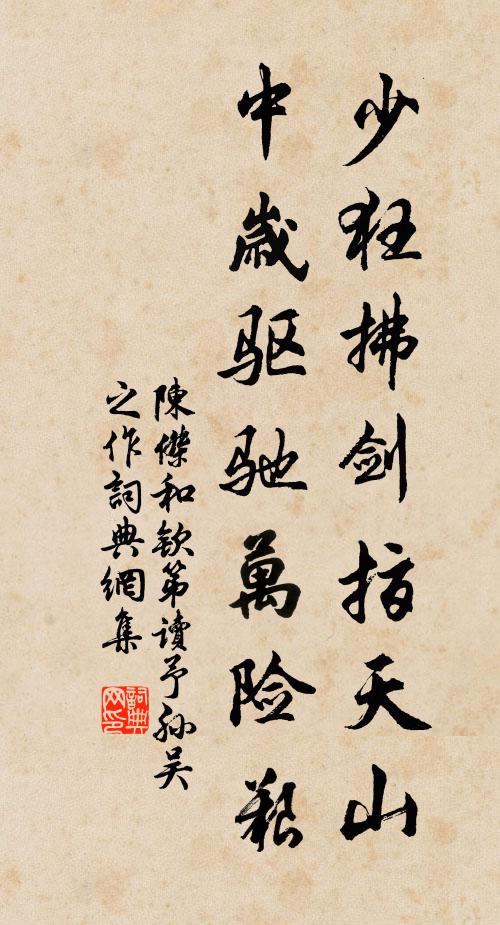 少狂拂剑指天山
中歳驱驰萬险艱
陳傑和欽第讀予孙吴
之作詞典網集
詞典网印